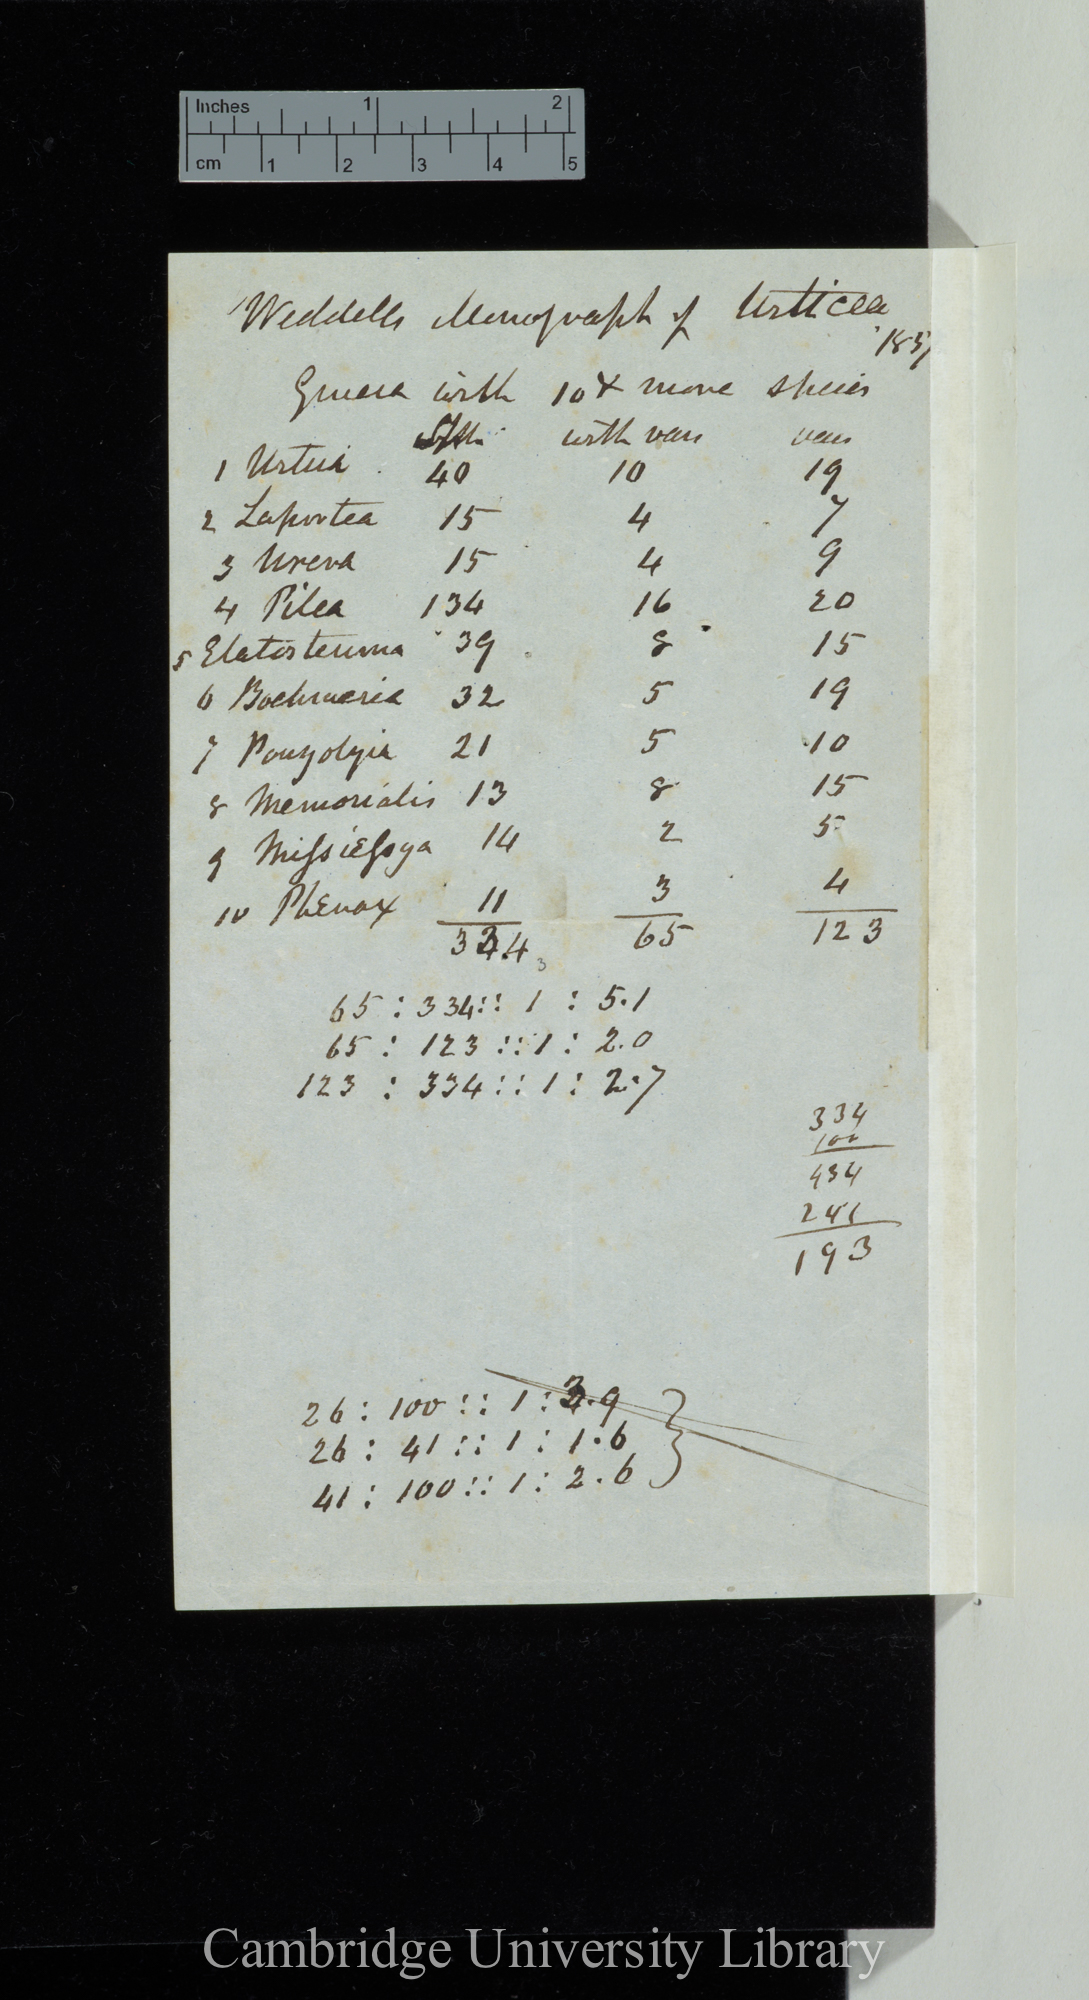 Inches 1 2
cm 1 2 3 4 5
Weddells Monograph of Urticeæ
1857
Genera with 10 & more species
with vars vars
1 Urtica 40 10 19
2 Laportea 15 4 7
3 Urera 15 4 9
4 Pilea 134 16 20
5 Elatostemma 39 8 15
6 Boehmeria 32 5 19
7 Pouzolzia 21 5 10
8 Memorialis 13 8 15
9 Missiessya 14 2 5
10 Phenax 11 3 4
334 65 123
3
65 : 334 :: 1 : 5.1
65 : 123 :: 1 : 2.0
123 : 334 :: 1 : 2.7
334
100
434
241
193
26 : 100 :: 1 : 3.9
26 : 41 :: 1 : 1.6
41 : 100 :: 1 : 2.6
Cambridge University Library